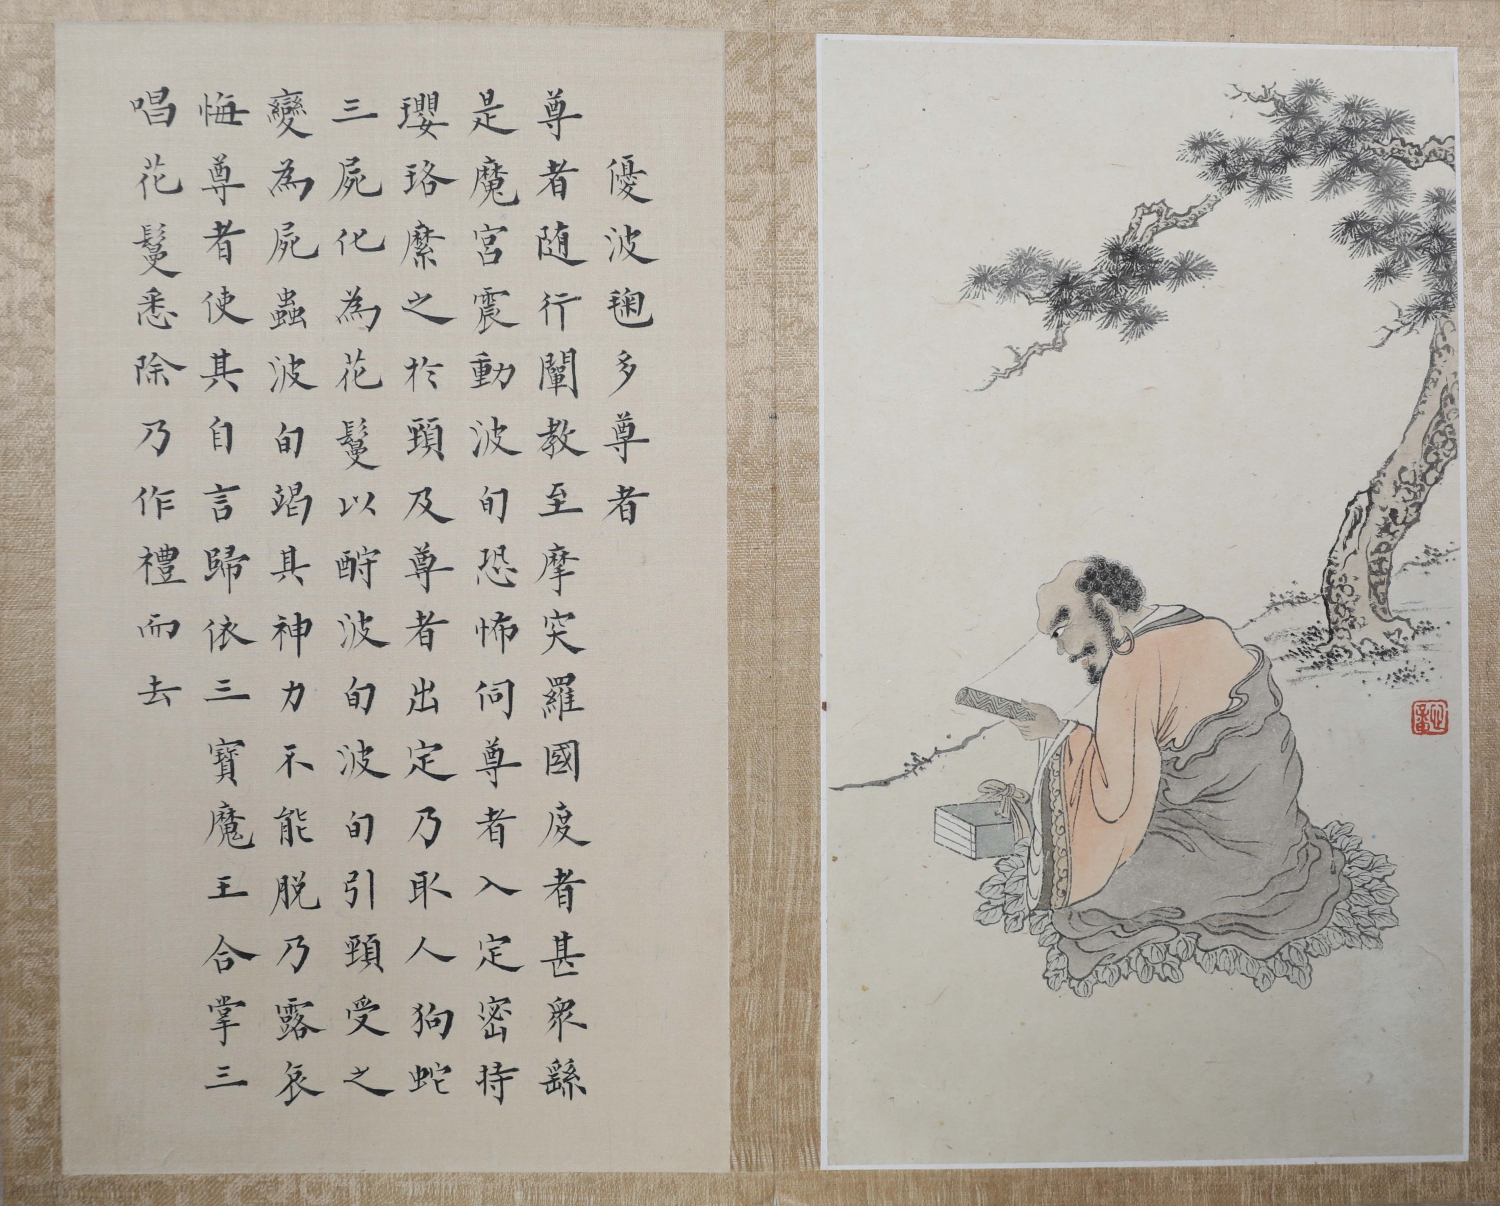 優波毱多尊者
尊者随行闡教至摩突羅國度者甚眾繇
是魔宮震動波旬恐怖伺尊者入定密持
瓔珞縻之於頸及尊者出定乃取人狗蛇
三屍化為花鬘以酧波旬波旬引頸受之
變為屍蟲波旬竭其神力不能脱乃露哀
悔尊者使其自言歸依三寶魔王合掌三
唱花鬘悉除乃作禮而去